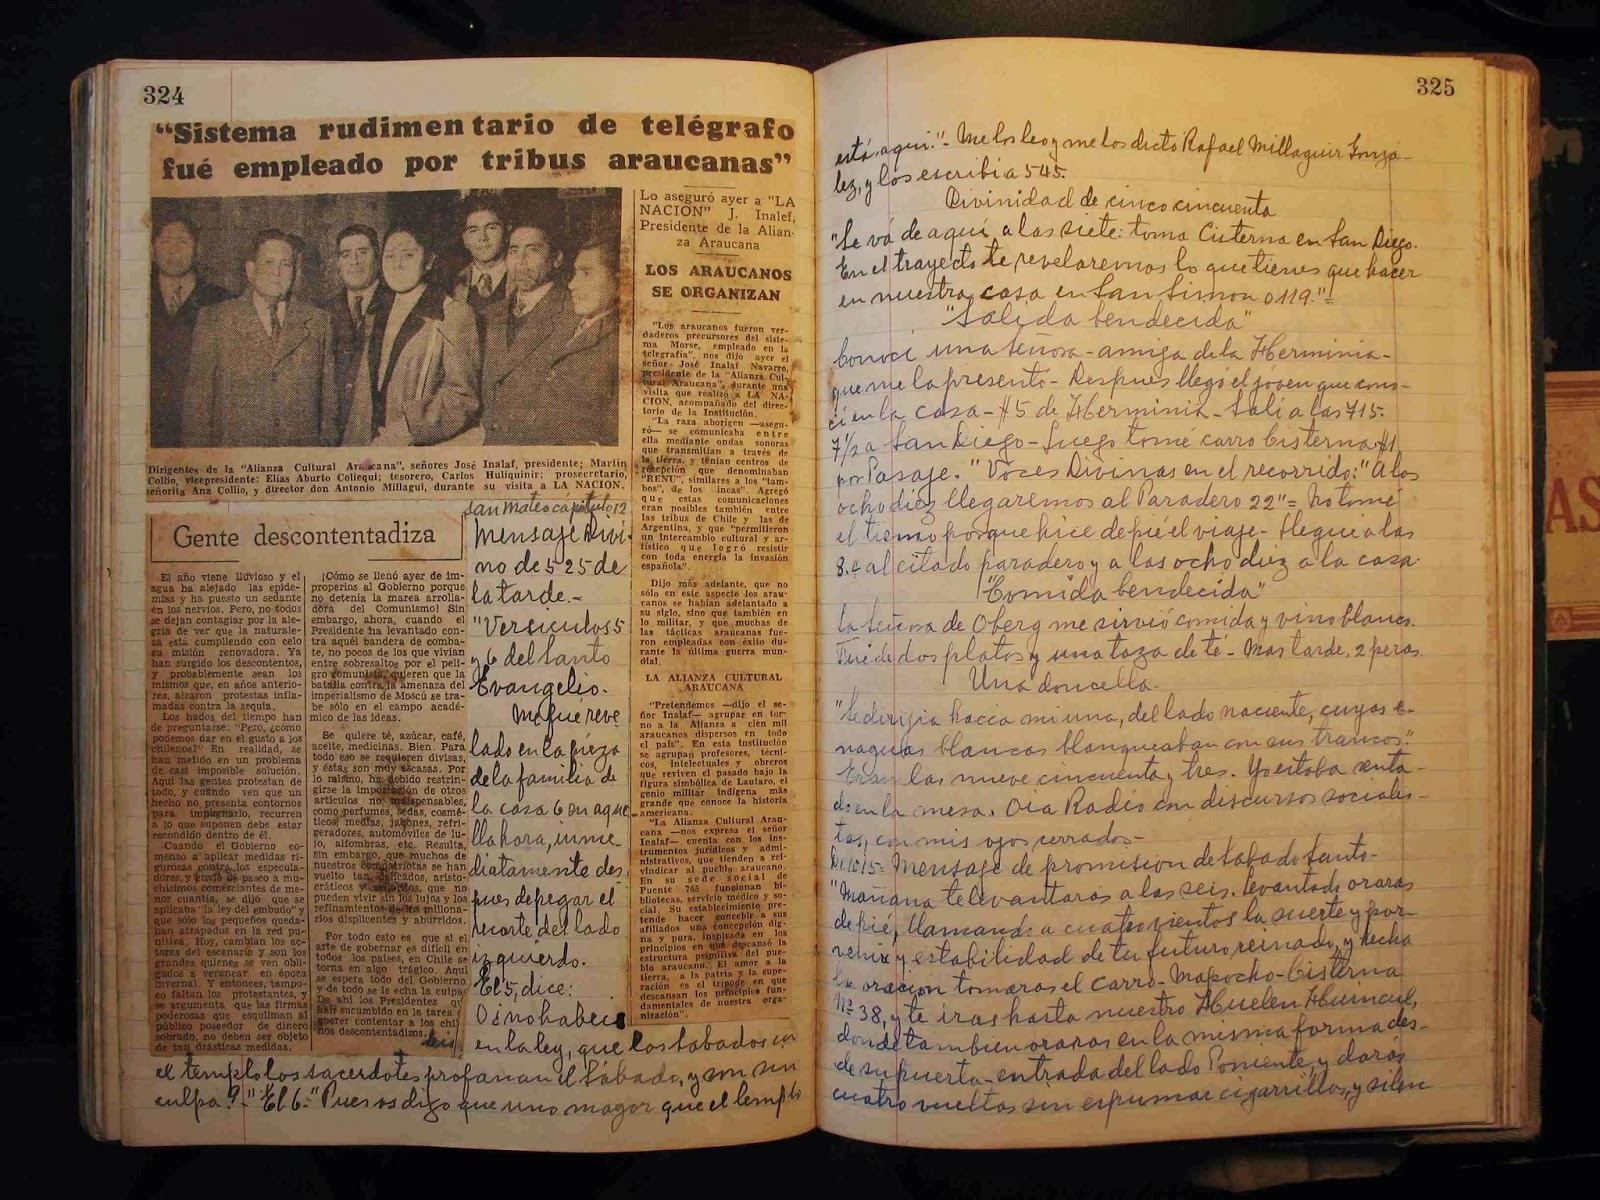 324
"Sistema rudimentario de telégrafo
fué empleado por tribus araucanas"
Lo aseguró ayer a "LA
NACION" J. Inalef,
Presidente de la Alian-
za Araucana
LOS ARAUCANOS
SE ORGANIZAN
"Los araucanos fueron ver-
daderos precursores del siste-
ma Morse, empleado en la
telegrafía", nos dijo ayer el
señor José Inalaf Navarro,
presidente de la "Alianza Cul-
tural Araucana", durante una
visita que realizó a LA NA-
CION, acompañado del direc-
torio de la Institución.
La raza aborigen —asegu-
ró— se comunicaba entre
ella mediante ondas sonoras
que transmitían a través de
la tierra, y tenían centros de
recepción que denominaban
"RENU", similares a los "tam-
bos", de los incas". Agregó
que estas comunicaciones
eran posibles también entre
las tribus de Chile y las de
Argentina, y que "permitieron
un intercambio cultural y ar-
tístico que logró resistir
con toda energía la invasión
española".
Dijo más adelante, que no
sólo en este aspecto los arau-
canos se habían adelantado a
su siglo, sino que también en
lo militar, y que muchas de
las tácticas araucanas fue-
ron empleadas con éxito du-
rante la última guerra mun-
dial.
LA ALIANZA CULTURAL
ARAUCANA
"Pretendemos —dijo el se-
ñor Inalaf— agrupar en tor-
no a la Alianza a cien mil
araucanos dispersos en todo
el país". En esta institución
se agrupan profesores, técni-
cos, intelectuales y obreros
que reviven el pasado bajo la
figura simbólica de Lautaro, el
genio militar indígena más
grande que conoce la historia
americana.
"La Alianza Cultural Arau-
cana —nos expresa el señor
Inalaf— cuenta con los ins-
trumentos jurídicos y admi-
nistrativos, que tienden a rei-
vindicar al pueblo araucano.
En su sede social de
Puente 765 funcionan bi-
bliotecas, servicio médico y so-
cial. Su establecimiento pre-
tende hacer concebir a sus
afiliados una concepción dig-
na y pura, inspirada en los
principios en que descansó la
estructura primitiva del pue-
blo araucano. El amor a la
tierra, a la patria y la supe-
ración es el trípode en que
descansan los principios fun-
damentales de nuestra orga-
nización".
Dirigentes de la "Alianza Cultural Araucana", señores José Inalaf, presidente; Martín
Collio, vicepresidente: Elías Aburto Coliequi; tesorero, Carlos Huliquinir; prosecretario,
señorita Ana Collio, y director don Antonio Millagui, durante su visita a LA NACION.
Gente descontentadiza
El año viene lluvioso y el
agua ha alejado las epide-
mias y ha puesto un sedante
en los nervios. Pero, no todos
se dejan contagiar por la ale-
gría de ver que la naturale-
za está cumpliendo con celo
su misión renovadora. Ya
han surgido los descontentos,
y probablemente sean los
mismos que, en años anterio-
res, alzaron protestas infla-
madas contra la sequía.
Los hados del tiempo han
de preguntarse: "Pero, ¿cómo
podemos dar en el gusto a los
chilenos?" En realidad, se
han metido en un problema
de casi imposible solución.
Aquí las gentes protestan de
todo, y cuando ven que un
hecho no presenta contornos
para impugnarlo, recurren
a lo que suponen debe estar
escondido dentro de él.
Cuando el Gobierno co-
menzó a aplicar medidas ri-
gurosas contra los especula-
dores, y envió de paseo a mu-
chísimos comerciantes de me-
nor cuantía, se dijo que se
aplicaba "la ley del embudo" y
que sólo los pequeños queda-
ban atrapados en la red pu-
nitiva. Hoy, cambian los ac-
tores del escenario y son los
grandes quienes se ven obli-
gados a veranear en época
invernal. Y entonces, tampo-
co faltan los protestantes, y
se argumenta que las firmas
poderosas que esquilman al
público poseedor de dinero
sobrado, no deben ser objeto
de tan drásticas medidas.
¡Cómo se llenó ayer de im-
properios al Gobierno porque
no detenía la marea arrolla-
dora del Comunismo! Sin
embargo, ahora, cuando el
Presidente ha levantado con-
tra aquél bandera de comba-
te, no pocos de los que vivían
entre sobresaltos por el peli-
gro comunista, quieren que la
batalla contra la amenaza del
imperialismo de Moscú se tra-
be sólo en el campo acadé-
mico de las ideas.
Se quiere té, azúcar, café,
aceite, medicinas. Bien. Para
todo eso se requieren divisas,
y éstas son muy escasas. Por
lo mismo, ha debido restrin-
girse la importación de otros
artículos no indispensables,
como perfumes, sedas, cosmé-
ticos, medias, jabones, refri-
geradores, automóviles de lu-
jo, alfombras, etc. Resulta,
sin embargo, que muchos de
nuestros compatriotas se han
vuelto tan delicados, aristo-
cráticos y señoritos, que no
pueden vivir sin los lujos y los
refinamientos de los millona-
rios displicentes y aburridos.
Por todo esto es que si el
arte de gobernar es difícil en
todos los países, en Chile se
torna en algo trágico. Aquí
se espera todo del Gobierno
y de todo se le echa la culpa.
De ahí los Presidentes q'
han sucumbido en la tarea
querer contentar a los chi
nos descontentadizos.
San Mateo cápitulo 12
Mensaje Divi-
no de 5 25 de
la tarde.-
"Versiculos 5
y 6 del Santo
Evangelio.
Me fué reve
lado en la pieza
de la familia de
la casa 6 en aque
lla hora, inme-
diatamente des
pues de pegar el
recorte del lado
izquierdo.
El 5, dice:
O ino habeis
en la ley, que los sabados en
el templo los sacerdotes profanan el Sábado, y son sin
culpa?-" El 6-"Pues os digo que uno mayor que el templo
325
está aquí."- Me los leo y me los dictó Rafael Millaguir Gonzá-
lez, y los escribi a 545.
Divinidad de cinco cincuenta
"Se vá de aquí a las siete: toma Cisterna en San Diego.
En el trayecto te revelaremos lo que tienes que hacer
en nuestra casa en San Simon 0119."=
"Salida bendecida"
Conocí una señora- amiga de la Herminia-
que me la presentó- Despues llegó el jóven que cono-
cí en la casa- $5 de Herminia- Salí a las 715.
7½ a San Diego- Luego tomé carro Cisterna $1
por Pasaje. "Voces Divinas en el recorrido: "A las
ocho diez llegaremos al Paradero 22"= No tomé
el tiempo porque hice de pié el viaje- Llegué a las
8.4 al citado paradero y a las ocho diez a la casa.
"Comida bendecida"
La Señora de Oberg me sirvió comida y vino blanco.
Fué de dos platos y una taza de té- Mas tarde, 2 peras
Una doncella.
"Se dirijia hacia mi una, del lado naciente, cuyas e-
naguas blancas blanqueaban con sus trancos."
Eran las nueve cincuenta y tres. Yo estaba senta-
do en la mesa. Oia Radio con discursos socialis-
tas, con mis ojos cerrados-
De 10 15= Mensage de promision de Sabado Santo-
"Mañana te levantaras a las seis. Levantado oraras
de pié, llamando a cuatro vientos la suerte y por-
venir y estabilidad de tu futuro reinado, y hecha
la oracion tomaras el carro- Mapocho-Cisterna
Nº 38, y te iras hasta nuestro Huelen Huincul,
donde tambien oraras en la misma forma des-
de su puerta- entrada del lado Poniente, y darás
cuatro vueltas sin espumar cigarrillos, y silen
AS